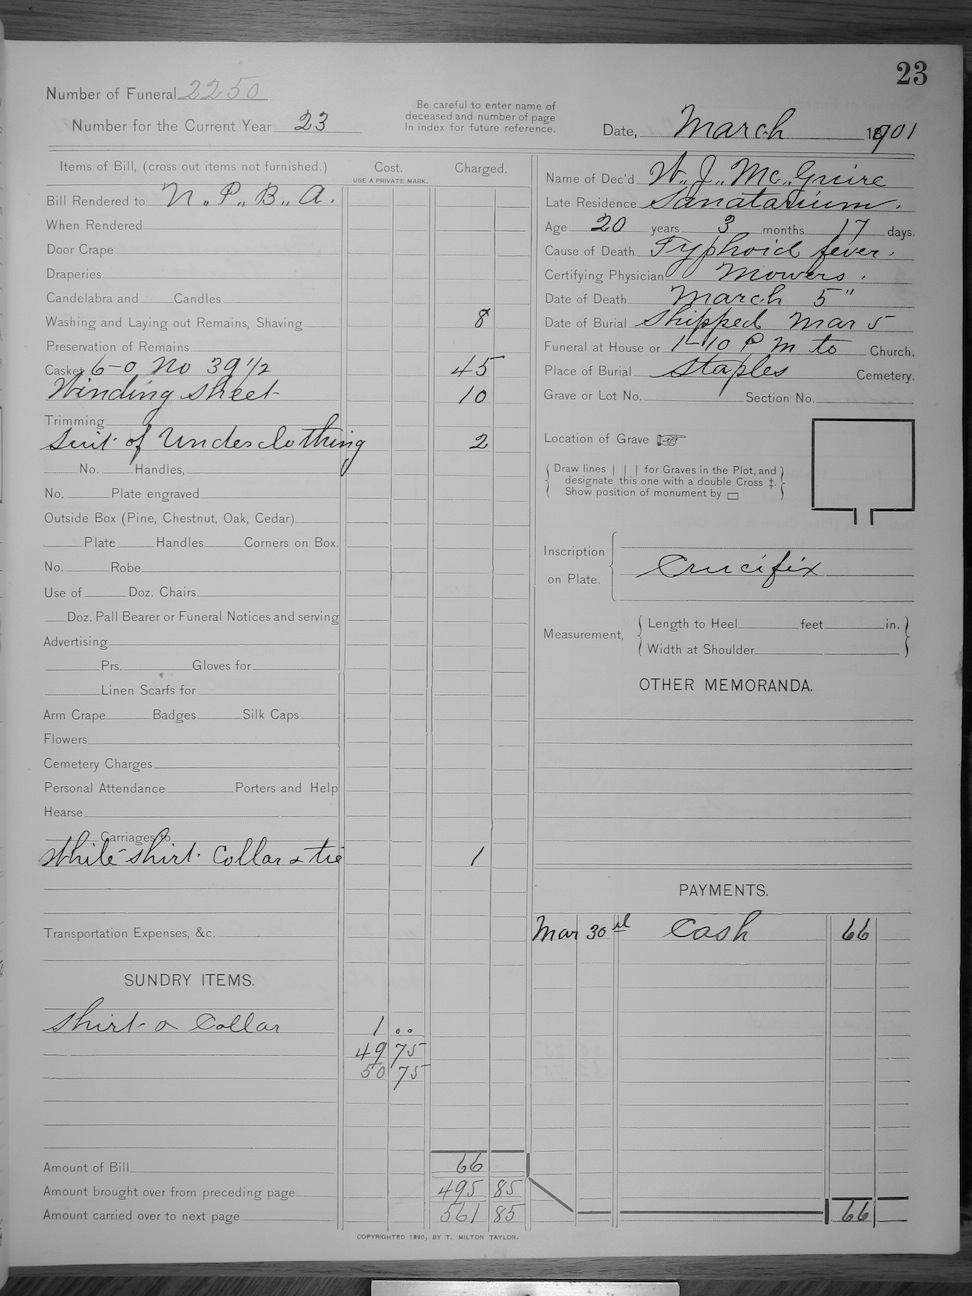 23
Number of Funeral 2250
Number for the Current Year 23
Be careful to enter name of
deceased and number of page
In index for future reference.
Date, March 1901
Items of Bill, (cross out items not furnished.) Cost. Charged.
USE A PRIVATE MARK.
Bill Rendered to N.,P.,B.,A.
When Rendered
Door Crape
Draperies
Candelabra and Candles
Washing and Laying out Remains, Shaving 8
Preservation of Remains
Casket 6-0 No 39 1/2 45
Winding sheet 10
Trimming
Suit of Underclothing 2
No. Handles,
No. Plate engraved
Outside Box (Pine, Chestnut, Oak, Cedar)
Plate Handles Corners on Box.
No. Robe
Use of Doz. Chairs
Doz. Pall Bearer or Funeral Notices and serving
Advertising
Prs. Gloves for
Linen Scarfs for
Arm Crape Badges Silk Caps
Flowers
Cemetery Charges
Personal Attendance Porters and Help
Hearse
Carriages to
White shirt Collar & tie 1
Transportation Expenses, &c.
SUNDRY ITEMS.
Shirt & Collar 1 ..
49 75
50 75
Amount of Bill 66
Amount brought over from preceding page 495 85
Amount carried over to next page 561 85
Name of Dec'd W.,J.,Mc.,Guire
Late Residence Sanatarium.
Age 20 years 3 months 17 days.
Cause of Death Typhoid fever.
Certifying Physician Mowers.
Date of Death March 5"
Date of Burial Shipped Mar 5
Funeral at House or 1-10 P M to Church.
Place of Burial Staples Cemetery.
Grave or Lot No. Section No.
Location of Grave
Draw lines | | | for Graves in the Plot, and
designate this one with a double Cross ‡.
Show position of monument by ▭
Inscription
on Plate. Crucifix
Measurement, Length to Heel feet in.
Width at Shoulder
OTHER MEMORANDA.
PAYMENTS.
Mar 30 Cash 66
66
COPYRIGHTED 1890, BY T. MILTON TAYLOR.